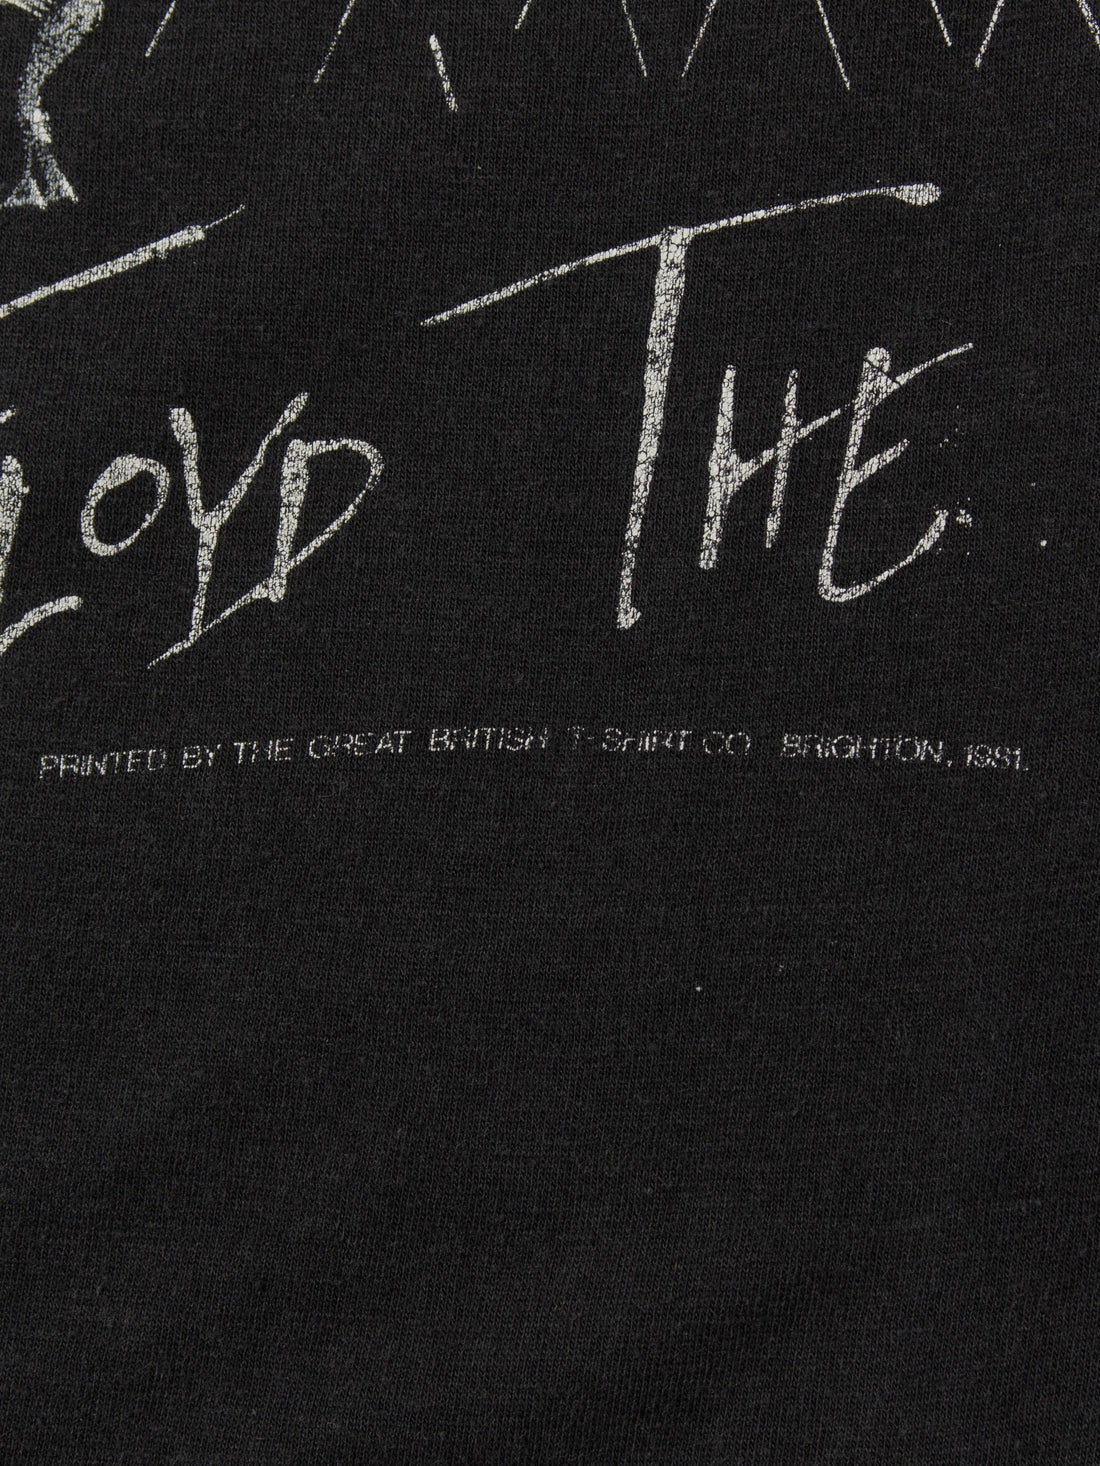 LOYD THE
PRINTED BY THE GREAT BRITISH T-SHIRT CO BRIGHTON, 1981.